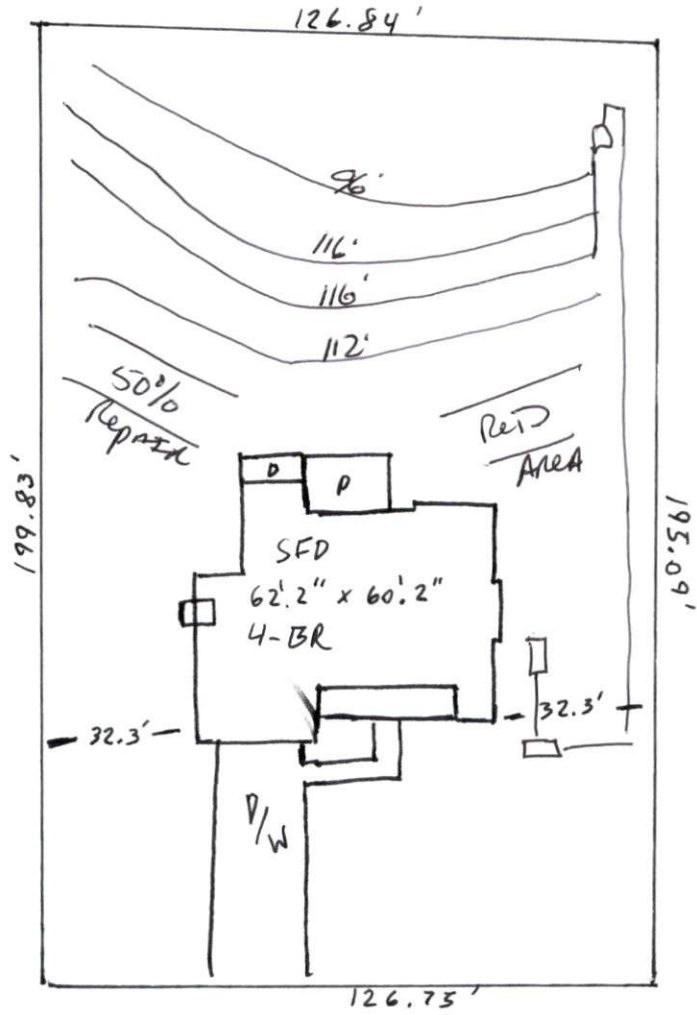 126.84'
96'
116'
116'
112'
50%
Repair
Rep
Area
199.83'
195.09'
D
P
SFD
62'.2" x 60'.2"
4-BR
32.3'
32.3'
D/W
126.75'